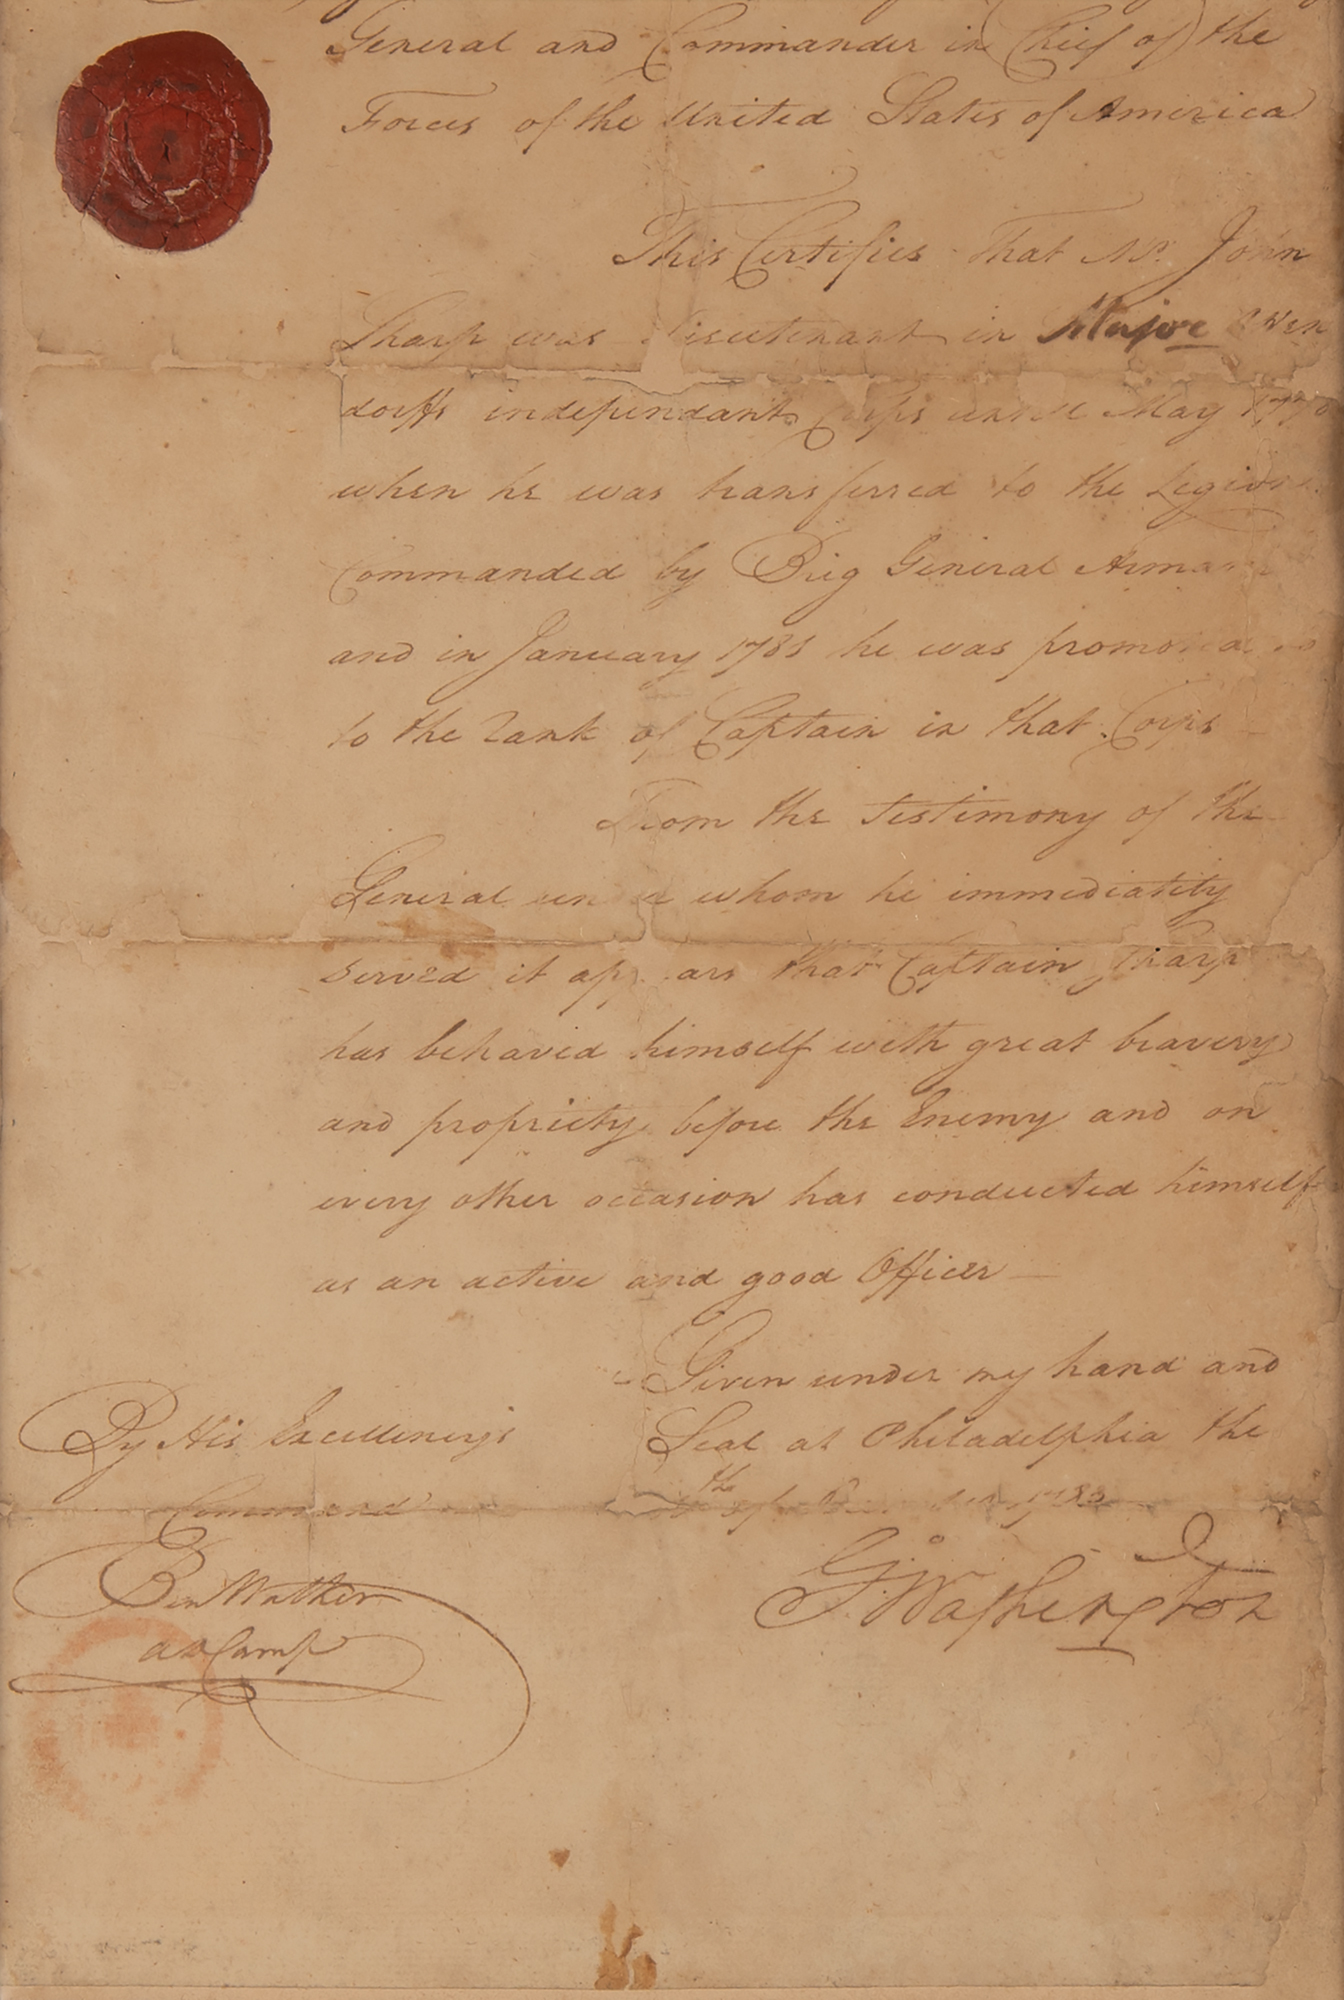 General and Commander in Chief of the
Forces of the United States of America
This Certifies That Mr. John
Sharp was Lieutenant in Major Otten
dorffs independant Corps untill May
when he was transferred to the Legion
Commanded by Brig General Armand
and in January 1783 he was promoted
to the Rank of Captain in that Corps
From the testimony of the
General under whom he immediately
served it appears that Captain Sharp
has behaved himself with great bravery
and propriety before the Enemy and on
every other occasion has conducted himself
as an active and good Officer
Given under my hand and
Seal at Philadelphia the
th of 1783
By His Excellency's
Command
Ben Walker
aD Camp
G:Washington